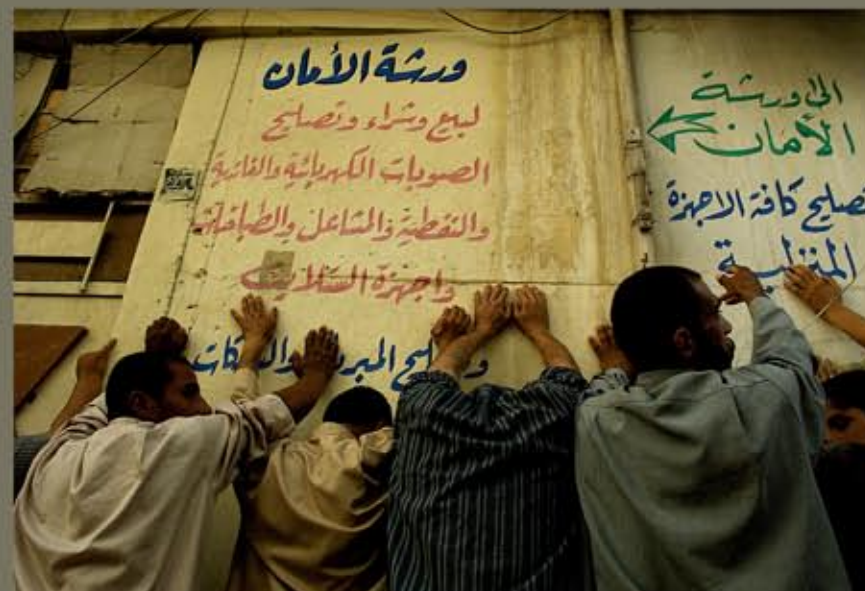 ورشة الأمان
لبيع وشراء وتصليح
الصوبات الكهربائية والغازية
والنفطية والمشاعل والطباخات
واجهزة الستلايت
المبر
الى ورشة
الأمان
تصليح كافة الاجهزة
المنزلية